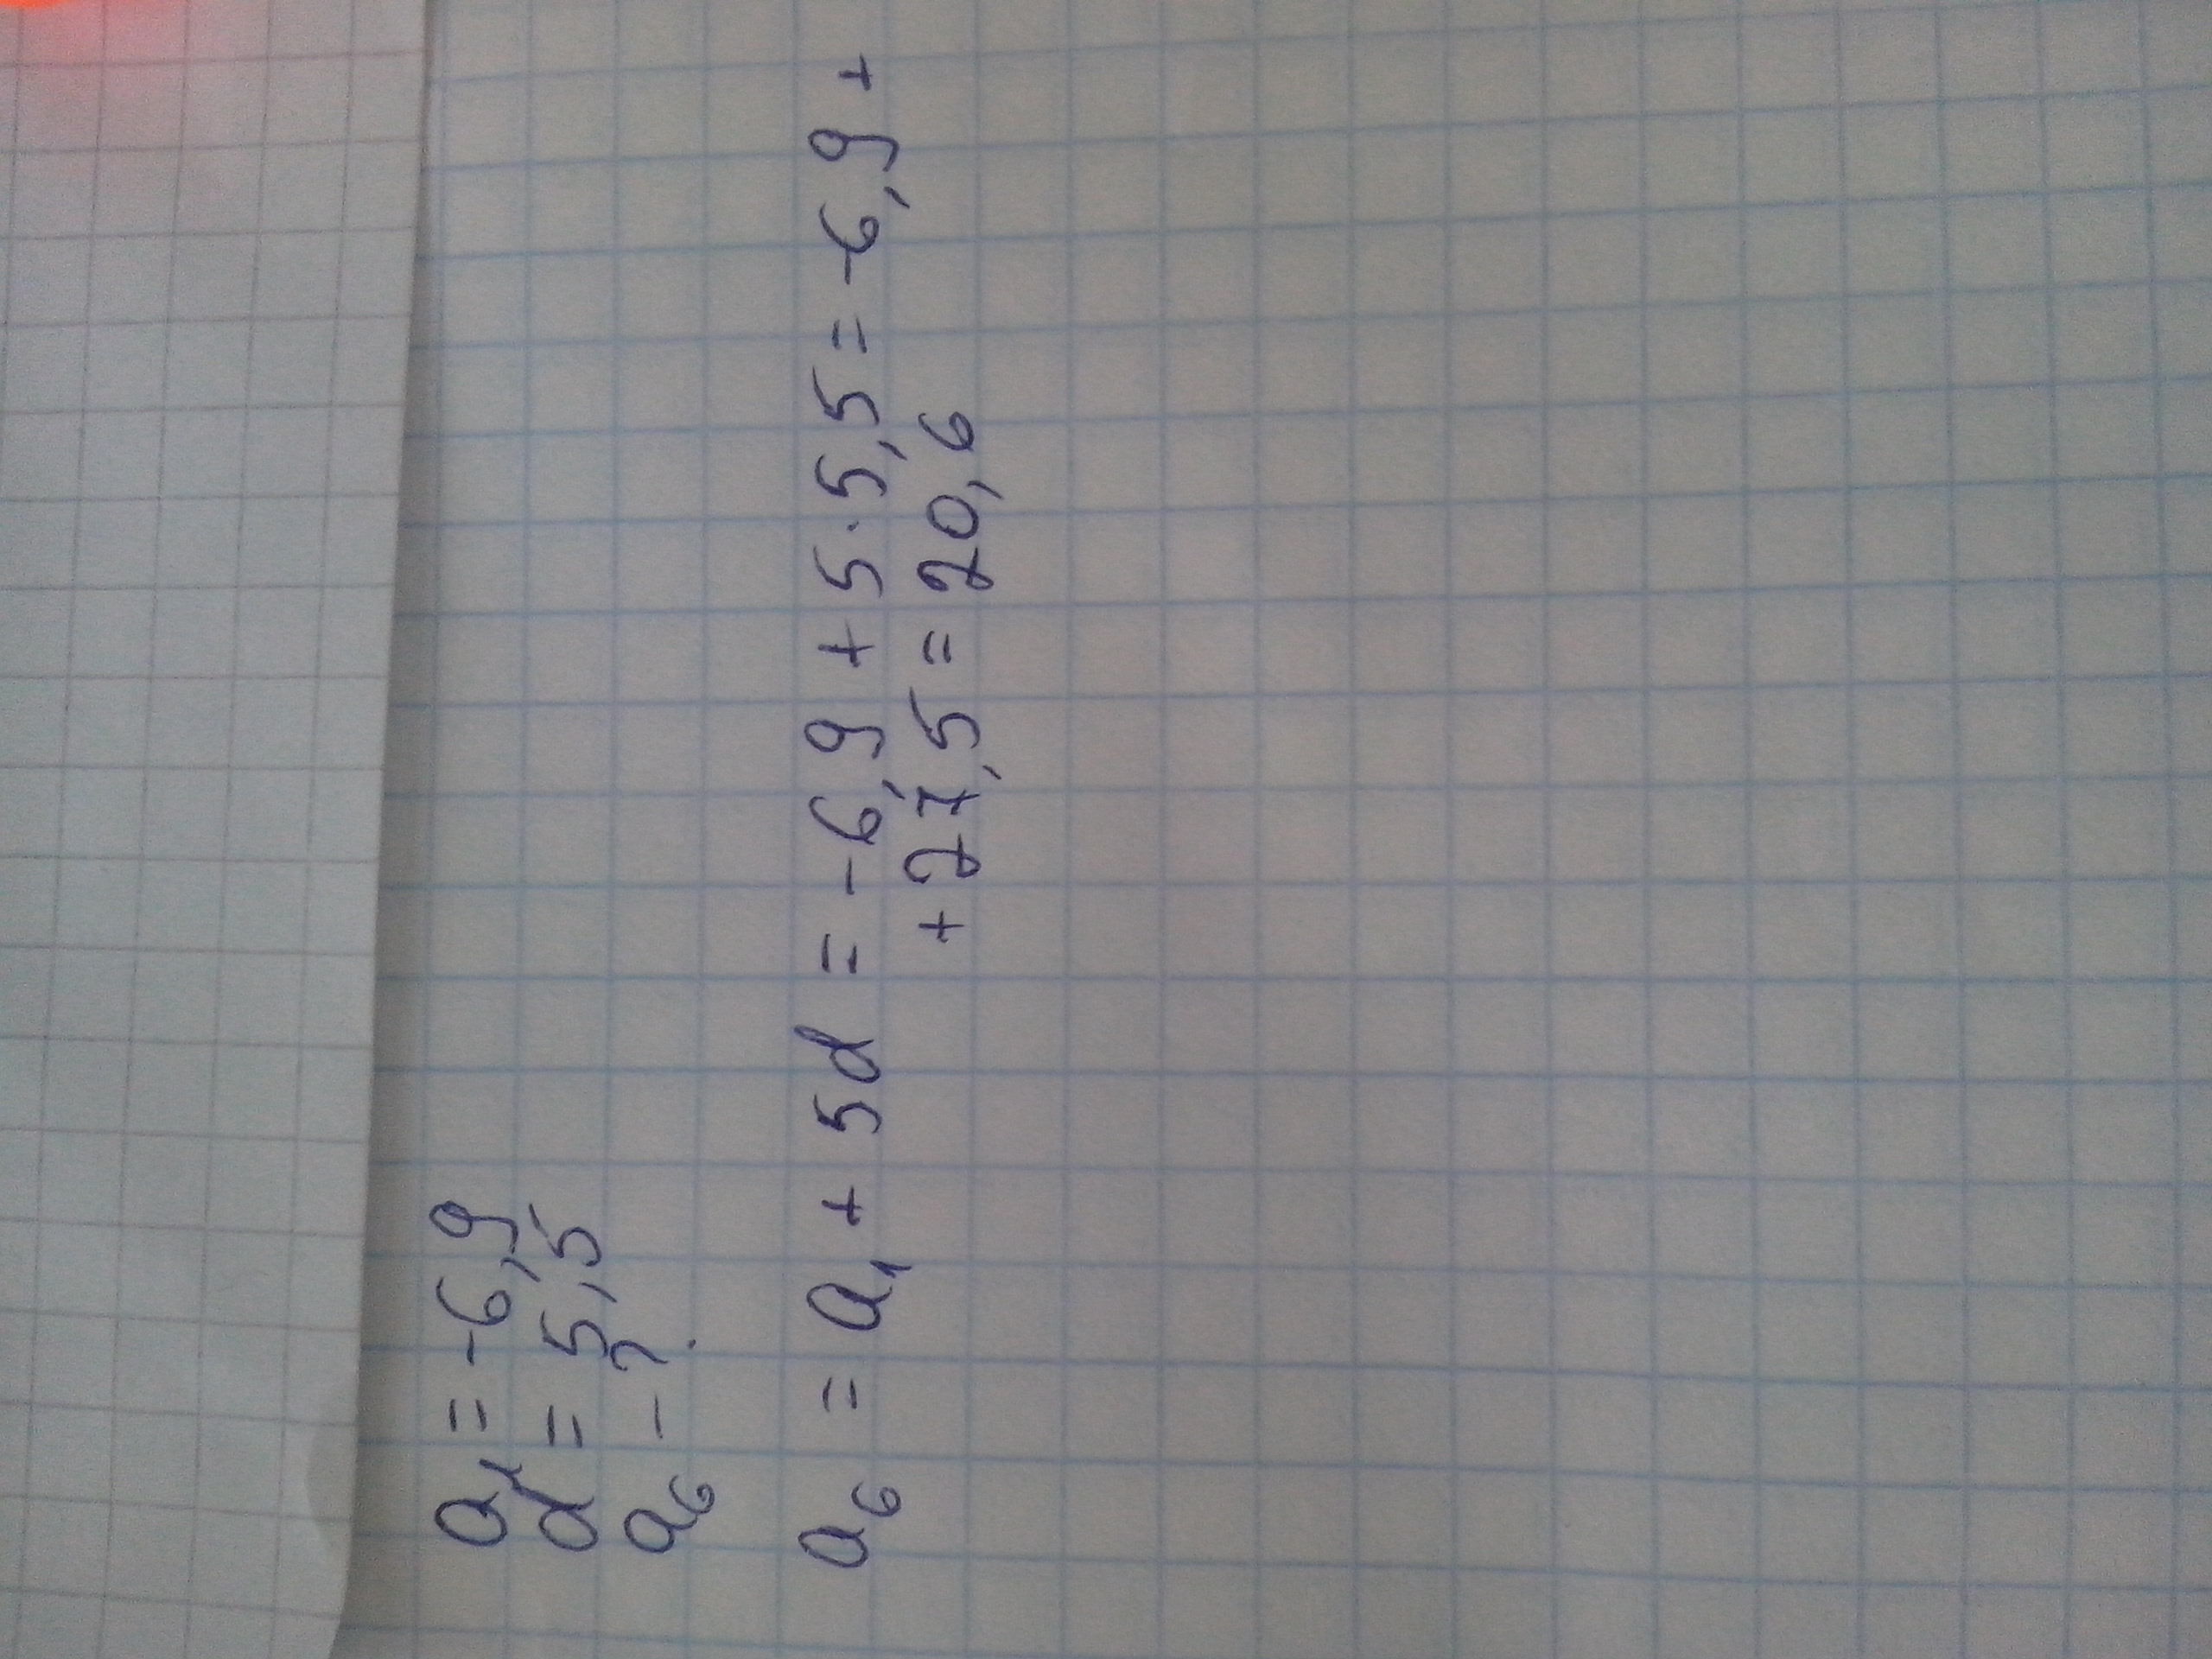 a₁ = -6,9
d = 5,5
a₆ - ?
a₆ = a₁ + 5d = -6,9 + 5 · 5,5 = -6,9 +
+ 27,5 = 20,6